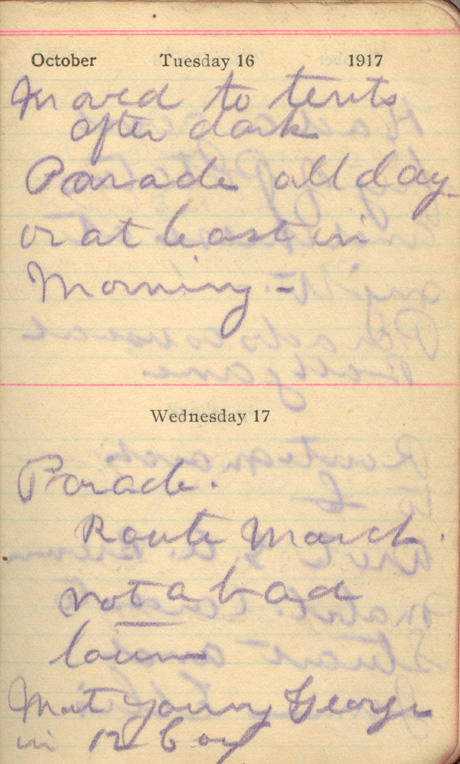 October Tuesday 16 1917
Moved to tents
after dark
Parade all day
or at least in
Morning -
Wednesday 17
Parade.
Route March.
not a bad
Met Young George
in 12 Coy